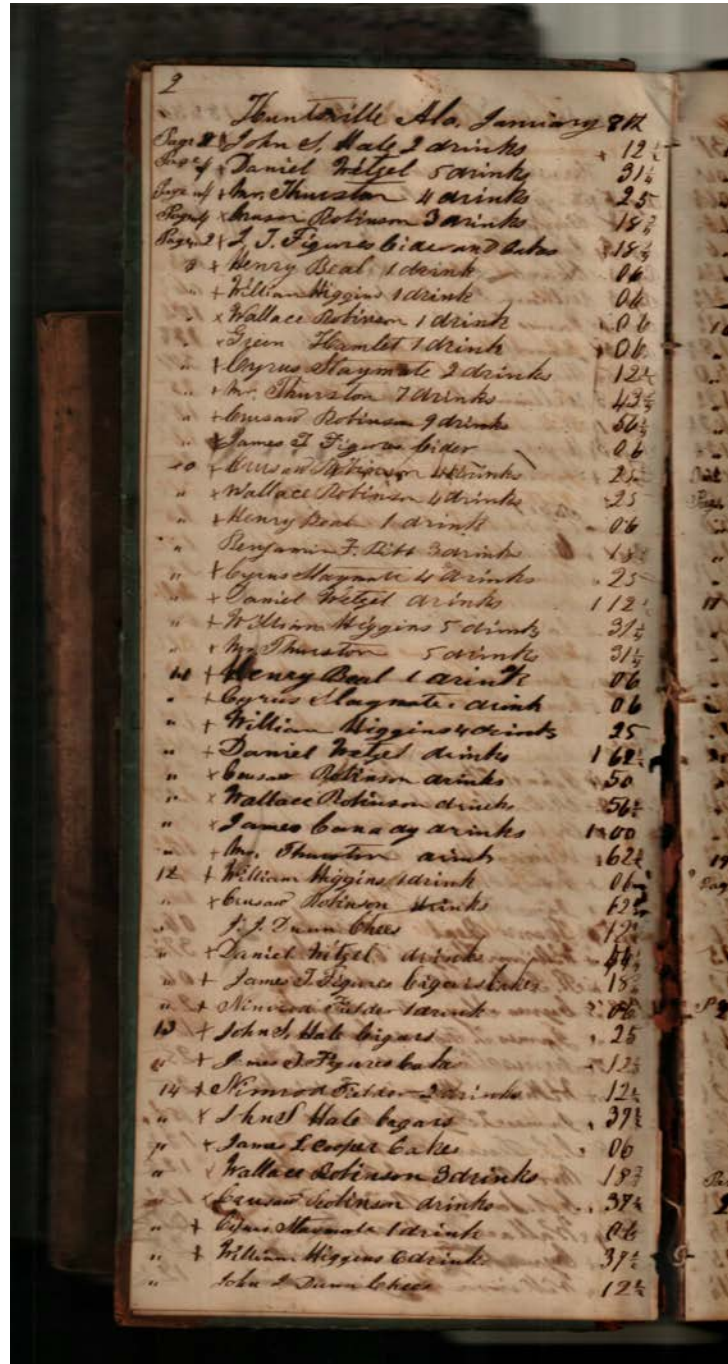 2
Huntsville Ala. January 8th
Page 2 x John S. Hale 2 drinks 12½
Page 4 x Daniel Wetzel 5 drinks 31¼
Page 4 + Mr. Thurston 4 drinks 25
Page 4 x Crusaw Robinson 3 drinks 18¾
Page 2 x J. T. Figures Cider and Cakes 18¾
+ Henry Beal 1 drink 06
" + William Higgins 1 drink 06
" x Wallace Robinson 1 drink 06
" x Green Hamlet 1 drink 06
" + Cyrus Slaymate 2 drinks 12½
" + Mr. Thurston 7 drinks 43¾
" + Crusaw Robinson 9 drinks 56¼
" x James T Figures Cider 06
10 + Crusaw Robinson 4 drinks 25
" + Wallace Robinson 4 drinks 25
" + Henry Beal 1 drink 06
" Benjamin F. 3 drinks 18¾
" + Cyrus Slaymate 4 drinks 25
" + Daniel Wetzel drinks 1 12½
" + William Higgins 5 drinks 31¼
" + Mr Thurston 5 drinks 31¼
11 + Henry Beal 1 drink 06
" + Cyrus Slaymate 1 drink 06
" + William Higgins 4 drinks 25
" + Daniel Wetzel drinks 1 62½
" x Crusaw Robinson drinks 50
" x Wallace Robinson drinks 56¼
" x James Canady drinks 1 00
" + Mr. Thurston drinks 62½
12 + William Higgins 1 drink 06
" + Crusaw Robinson drinks 62½
" J. J. Dunn Chees 12½
" + Daniel Wetzel drinks 44
" + James T. Figures Cigars Cakes 18¾
" + Nimrod Fielder 1 drink 06
13 + John S. Hale Cigars 25
" + James T. Figures Cakes 12½
14 + Nimrod Fielder 2 drinks 12½
" x John S Hale Cigars 37½
" x James L Cooper Cakes 06
" x Wallace Robinson 3 drinks 18¾
" x Crusaw Robinson drinks 37½
" + Cyrus Slaymate 1 drink 06
" + William Higgins 6 drinks 37½
" John J Dunn Chees 12½